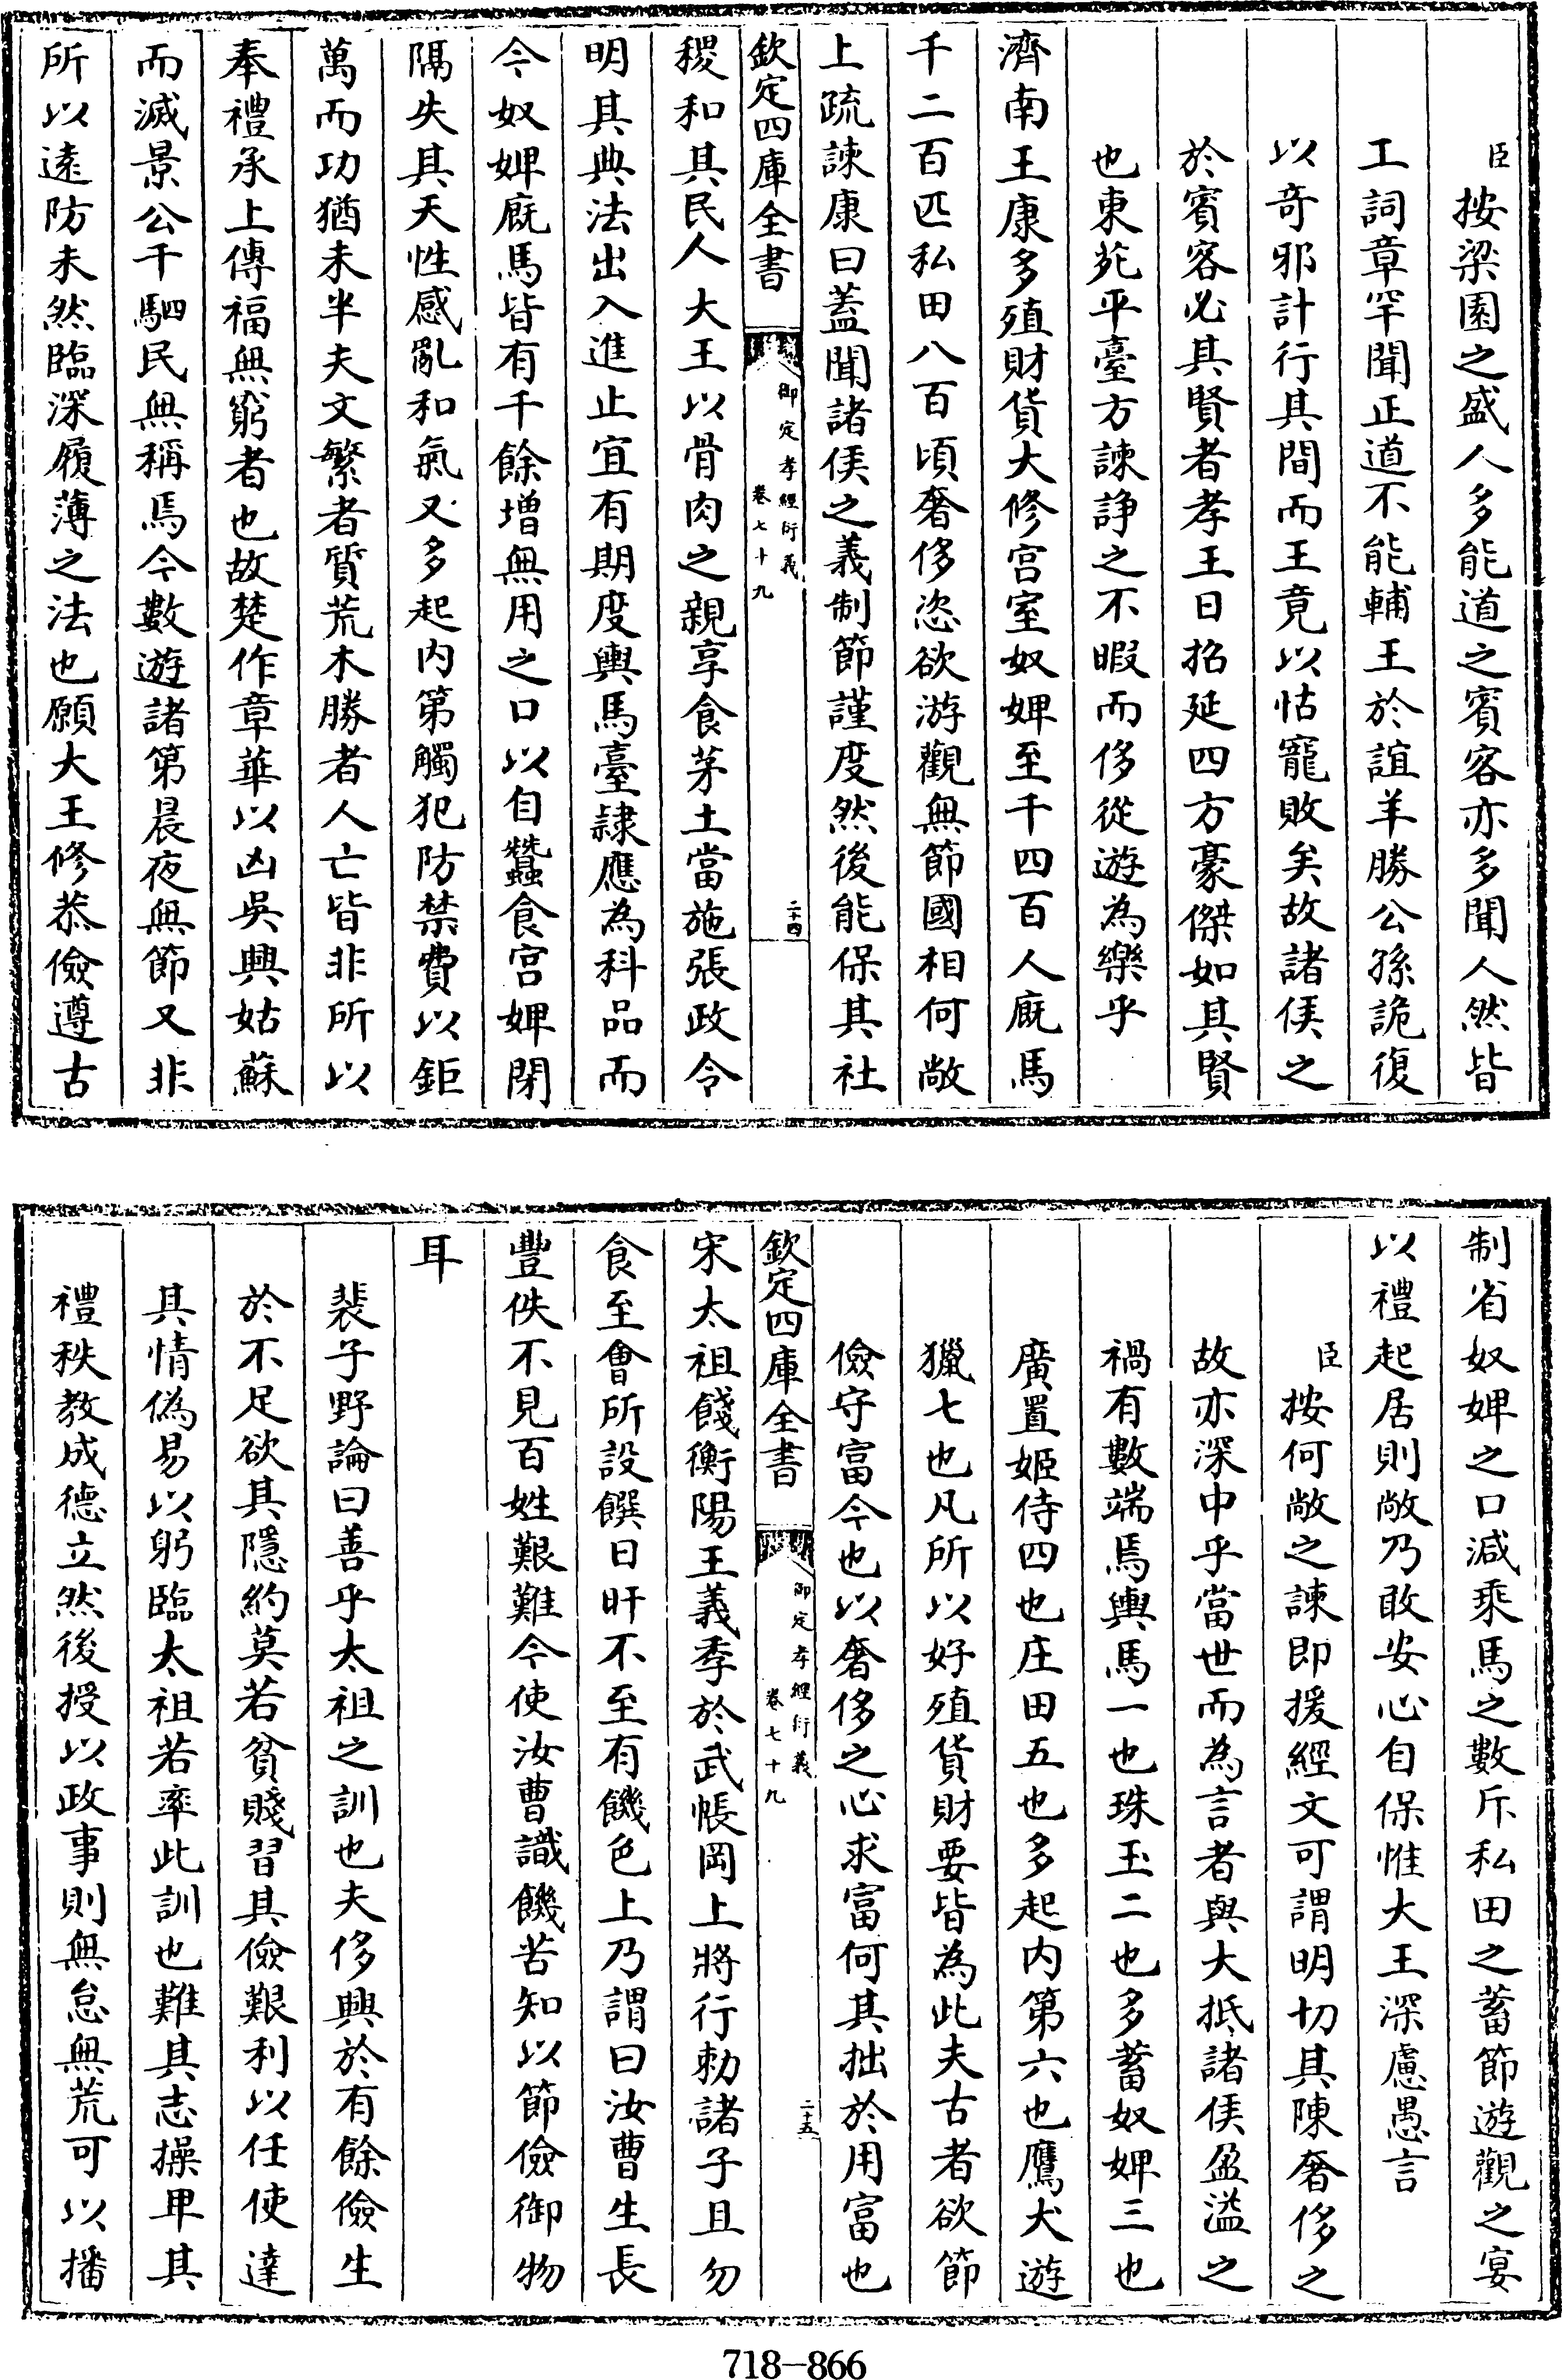 臣按梁園之盛人多能道之賓客亦多聞人然皆
工詞章罕聞正道不能輔王於誼羊勝公孫詭復
以奇邪計行其間而王竟以怙寵敗矣故諸侯之
於賓客必其賢者孝王日招延四方豪傑如其賢
也東苑平臺方諫諍之不暇而侈從遊為樂乎
濟南王康多殖財貨大修宫室奴婢至千四百人廐馬
千二百匹私田八百頃奢侈恣欲游觀無節國相何敞
上疏諫康曰蓋聞諸侯之義制節謹度然後能保其社
欽定四庫全書
御定孝經衍義
卷七十九
二十四
稷和其民人大王以骨肉之親享食茅土當施張政令
明其典法出入進止宜有期度輿馬臺隷應為科品而
今奴婢廐馬皆有千餘增無用之口以自蠶食宫婢閉
隔失其天性感亂和氣又多起内第觸犯防禁費以鉅
萬而功猶未半夫文繁者質荒木勝者人亡皆非所以
奉禮承上傳福無窮者也故楚作章華以凶吳興姑蘇
而滅景公千駟民無稱焉今數遊諸第晨夜無節又非
所以遠防未然臨深履薄之法也願大王修恭儉遵古
制省奴婢之口減乘馬之數斥私田之蓄節遊觀之宴
以禮起居則敞乃敢安心自保惟大王深慮愚言
臣按何敞之諫即援經文可謂明切其陳奢侈之
故亦深中乎當世而為言者與大抵諸侯盈溢之
禍有數端焉輿馬一也珠玉二也多蓄奴婢三也
廣置姬侍四也庄田五也多起内第六也鷹犬遊
獵七也凡所以好殖貨財要皆為此夫古者欲節
儉守富今也以奢侈之心求富何其拙於用富也
欽定四庫全書
御定孝經衍義
卷七十九
二十五
宋太祖餞衡陽王義季於武帳岡上將行勅諸子且勿
食至會所設饌日旰不至有饑色上乃謂曰汝曹生長
豐佚不見百姓艱難今使汝曹識饑苦知以節儉御物
耳
裴子野論曰善乎太祖之訓也夫侈興於有餘儉生
於不足欲其隱約莫若貧賤習其儉艱利以任使達
其情偽易以躬臨太祖若率此訓也難其志操卑其
禮秩教成德立然後授以政事則無怠無荒可以播
718-866